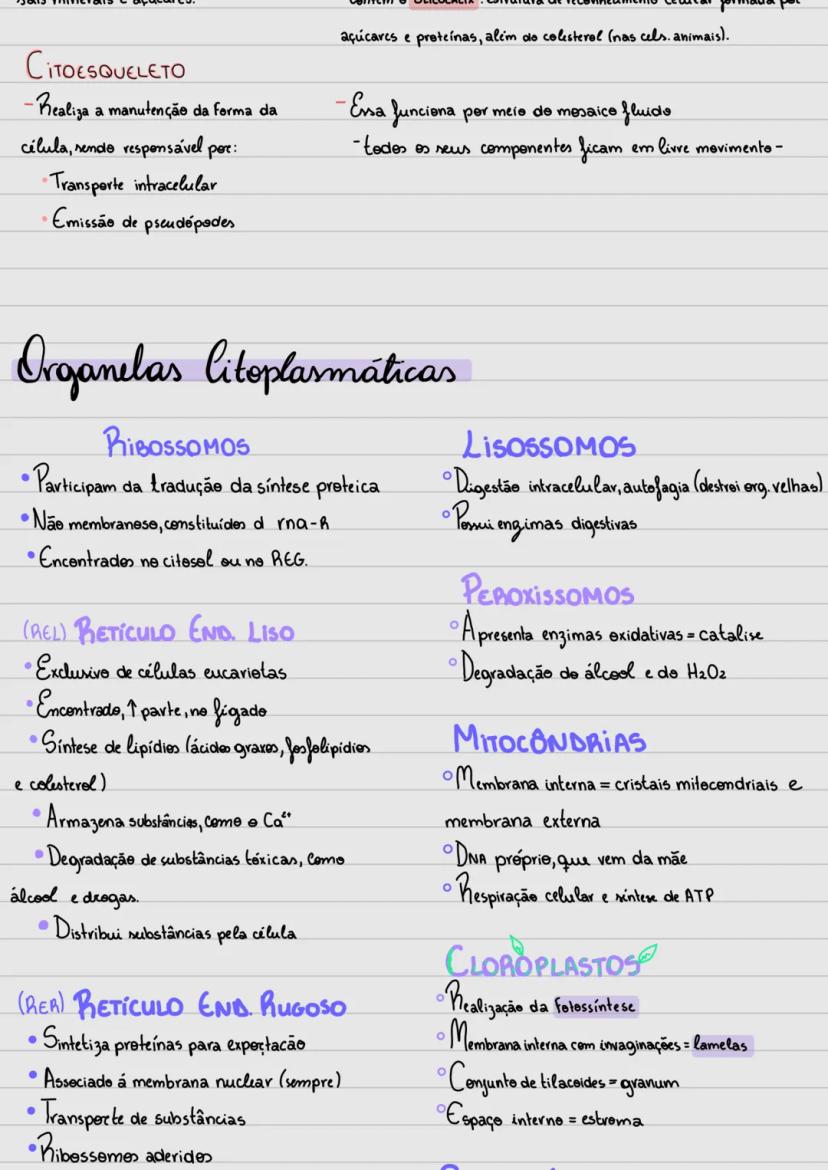 sais minerais e açúcares.
CITOESQUELETO
- Realiza a manutenção da forma da
célula, sendo responsável por:
• Transporte intracelular
• Emissão de pseudópodes
contém o GLICOCALIX: estrutura de reconhecimento celular formada por
açúcares e proteínas, além do colesterol (nas cels. animais).
- Essa funciona por meio do mosaico fluido
- todos os seus componentes ficam em livre movimento -
Organelas Citoplasmáticas
RIBOSSOMOS
• Participam da tradução da síntese proteica
• Não membranoso, constituídos d rna-R
• Encontrados no citosol ou no REG.
(REL) RETÍCULO END. LISO
• Exclusivo de células eucariotas
• Encontrado, ↑ parte, no fígado
• Síntese de lipídios (ácidos graxos, fosfolipídios
e colesterol)
• Armazena substâncias, como o Ca²⁺
• Degradação de substâncias tóxicas, como
álcool e drogas.
• Distribui substâncias pela célula
(RER) RETÍCULO END. RUGOSO
• Sintetiza proteínas para exportacão
• Associado á membrana nuclear (sempre)
• Transporte de substâncias
• Ribossomos aderidos
LISOSSOMOS
° Digestão intracelular, autofagia (destroi org. velhas)
° Possui enzimas digestivas
PEROXISSOMOS
° Apresenta enzimas oxidativas = catalise
° Degradação do álcool e do H2O2
MITOCÔNDRIAS
° Membrana interna = cristais mitocondriais e
membrana externa
° DNA próprio, que vem da mãe
° Respiração celular e síntese de ATP
CLOROPLASTOS
° Realização da fotossíntese
° Membrana interna com invaginações = lamelas
° Conjunto de tilacoides = granum
° Espaço interno = estroma